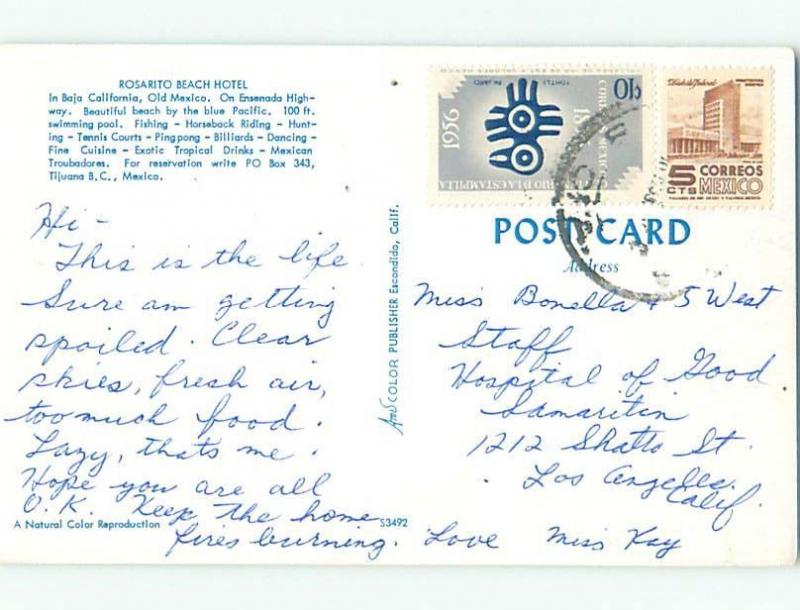 ROSARITO BEACH HOTEL
In Baja California, Old Mexico. On Ensenada High-
way. Beautiful beach by the blue Pacific. 100 ft.
swimming pool. Fishing - Horseback Riding - Hunt-
ing - Tennis Courts - Ping pong - Billiards - Dancing -
Fine Cuisine - Exotic Tropical Drinks - Mexican
Troubadores. For reservation write PO Box 343,
Tijuana B.C., Mexico.
Hi -
This is the life
Sure am getting
spoiled. Clear
skies, fresh air,
too much food.
Lazy, thats me.
Hope you are all
O.K. Keep the home
fires burning. Love Miss Kay
A Natural Color Reproduction
S3492
COLOR PUBLISHER Escondido, Calif.
1956
10
5 CTS CORREOS
MEXICO
POST CARD
Address
Miss Bonella & 5 West
Staff
Hospital of Good
Samaritin
1212 Shatto St.
Los Angeles.
Calif.